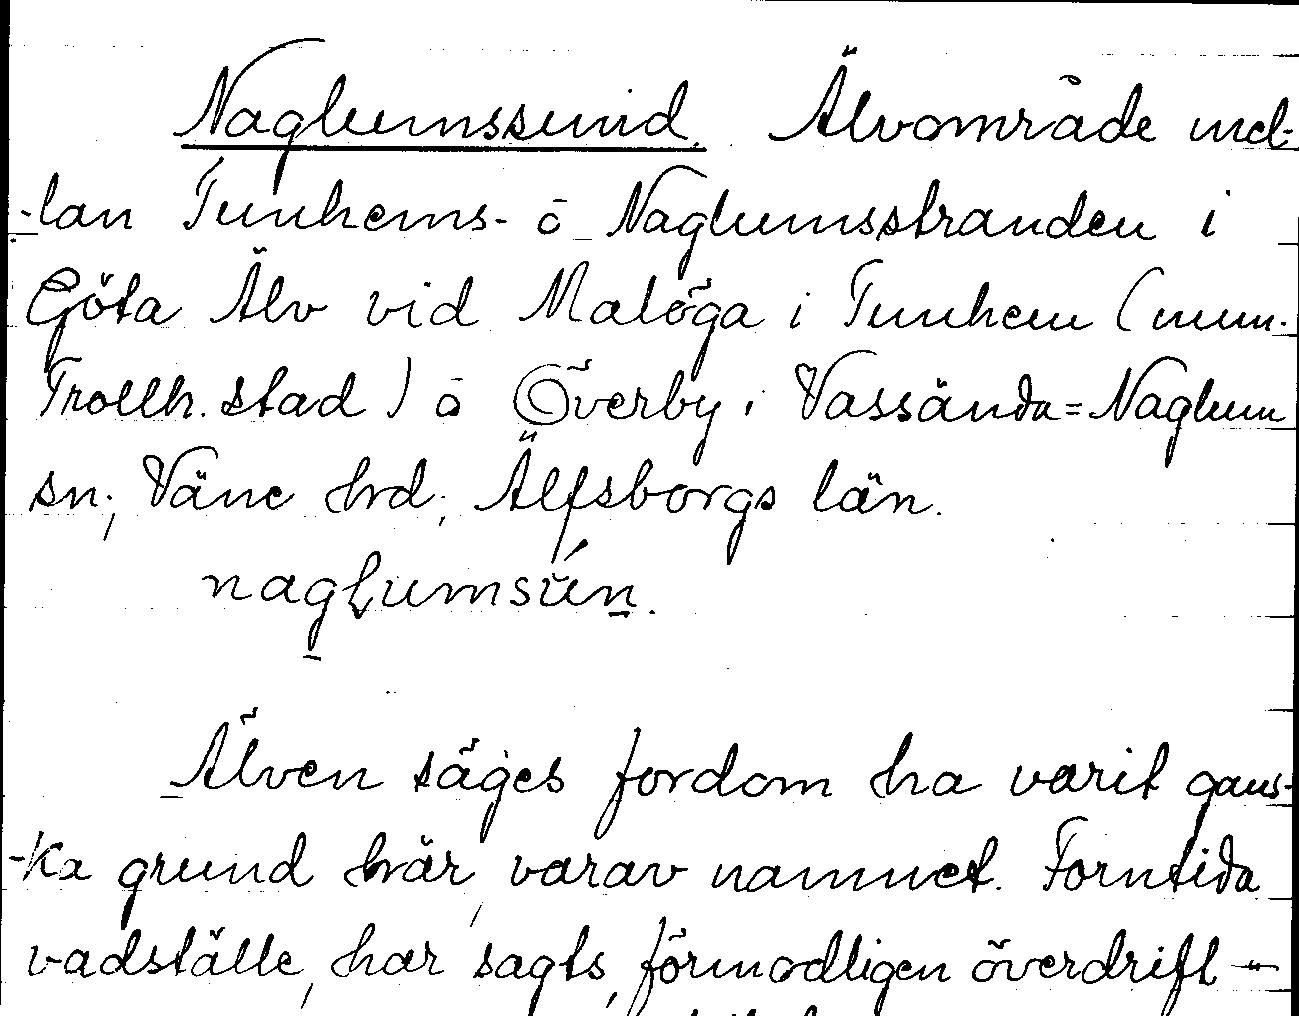 Naglumssund. Älvområde mel-
-lan Tunhems- o Naglumsstranden i
Göta Älv vid Malöga i Tunhem (num.
Trollh. stad) o Överby i Vassända=Naglum
sn, Väne hrd, Älfsborgs län.
naglumsún.
Älven säges fordom ha varit gans-
-ka grund här, varav namnet. Forntida
vadställe, har sagts, förmodligen överdrift —